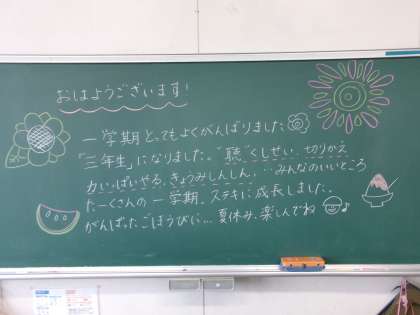 おはようございます!
一学期とってもよくがんばりました
「三年生」になりました。"聴"くしせい、切りかえ
力いっぱいやる、きょうみしんしん、…みんなのいいところ
たーくさんの一学期。ステキに成長しました。
がんばったごほうびに…夏休み、楽しんでね